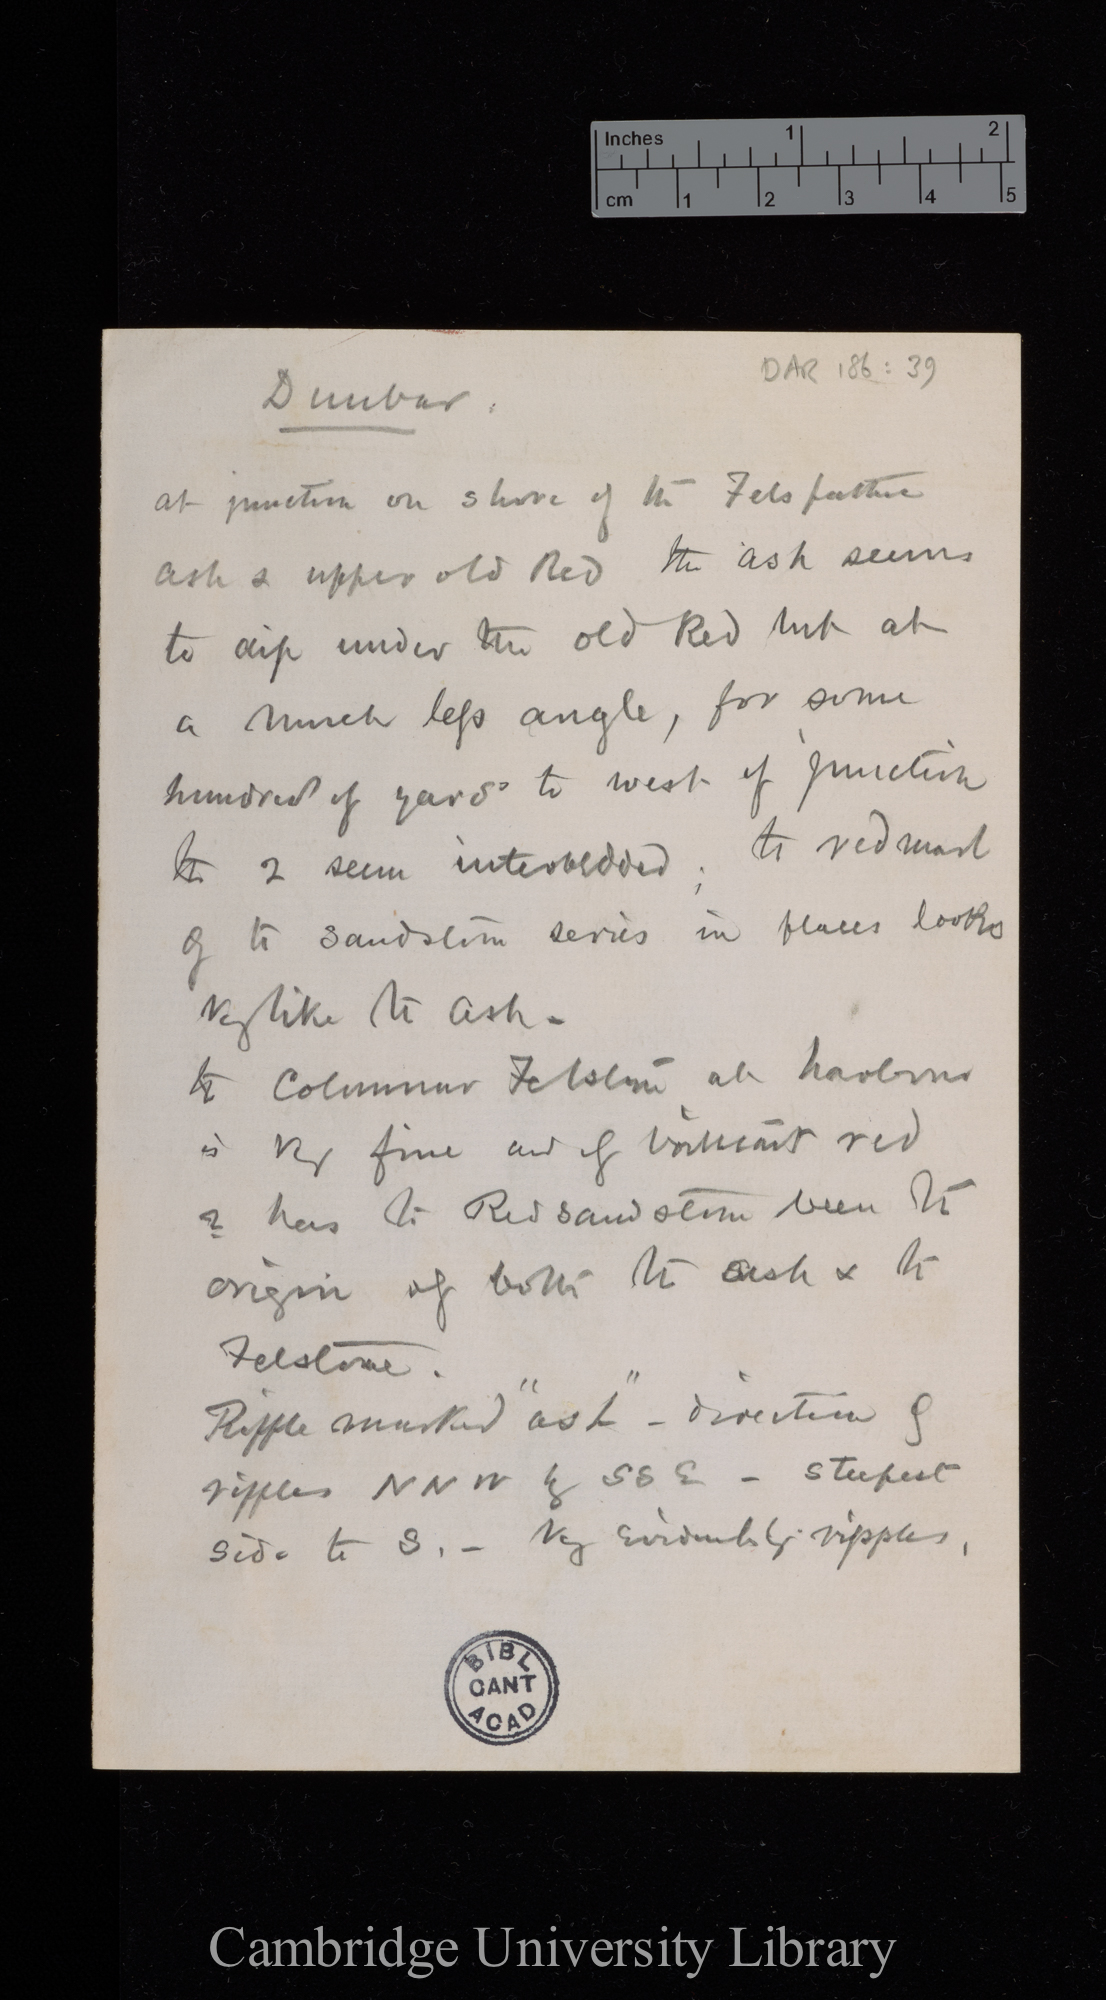 Inches 1 2
cm 1 2 3 4 5
DAR 186: 39
Dunbar.
at junction on shore of the Felspathic
ash & upper old Red the ash seems
to dip under the old Red but at
a much less angle, for some
hundred of yards to west of junction
the 2 seem interbedded; the red marl
of the sandstone series in places looks
Vy like the ash -
the Columnar Felstone at harbour
is Vy fine and of brilliant red
? has the Red sandstone been the
origin of both the ash & the
Felstone.
Ripple marked "ash" - direction of
ripples NNW by SSE - Steepest
side to S. - Vy evidently ripples,
BIBL
CANT
ACAD
Cambridge University Library